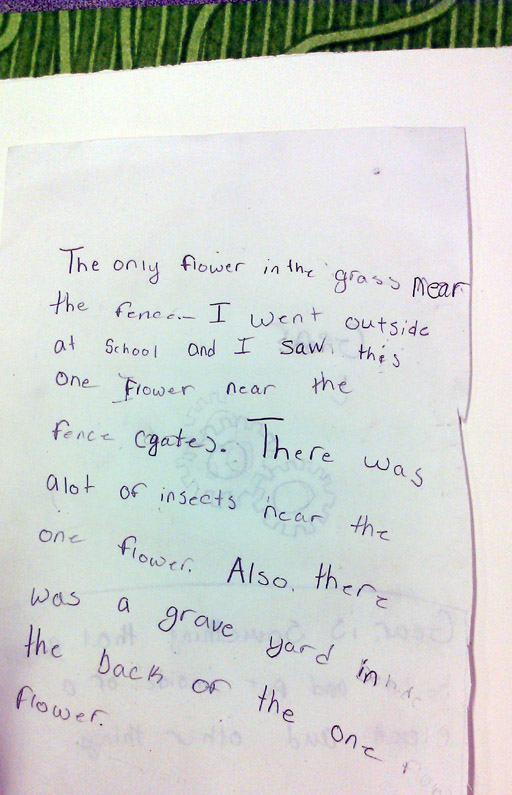 The only flower in the grass near
the fence. I went outside
at School and I saw this
one flower near the
fence (gates). There was
alot of insects near the
one flower. Also, there
was a grave yard in
the back of the one
flower.